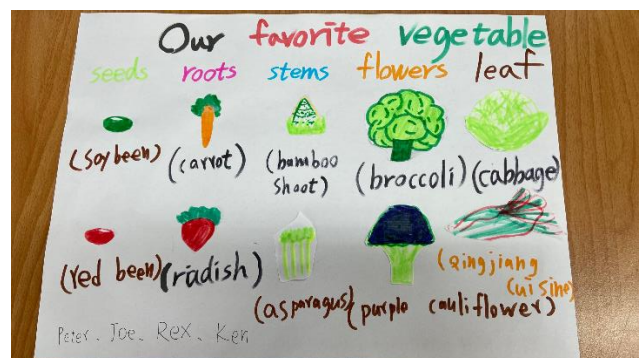 Our favorite vegetable
seeds roots stems flowers leaf
(soybeen) (carrot) (bamboo shoot) (broccoli) (cabbage)
(red been) (radish) (asparagus) (purple cauliflower) (Qingjiang cuisine)
Peter、Joe、Rex、Ken